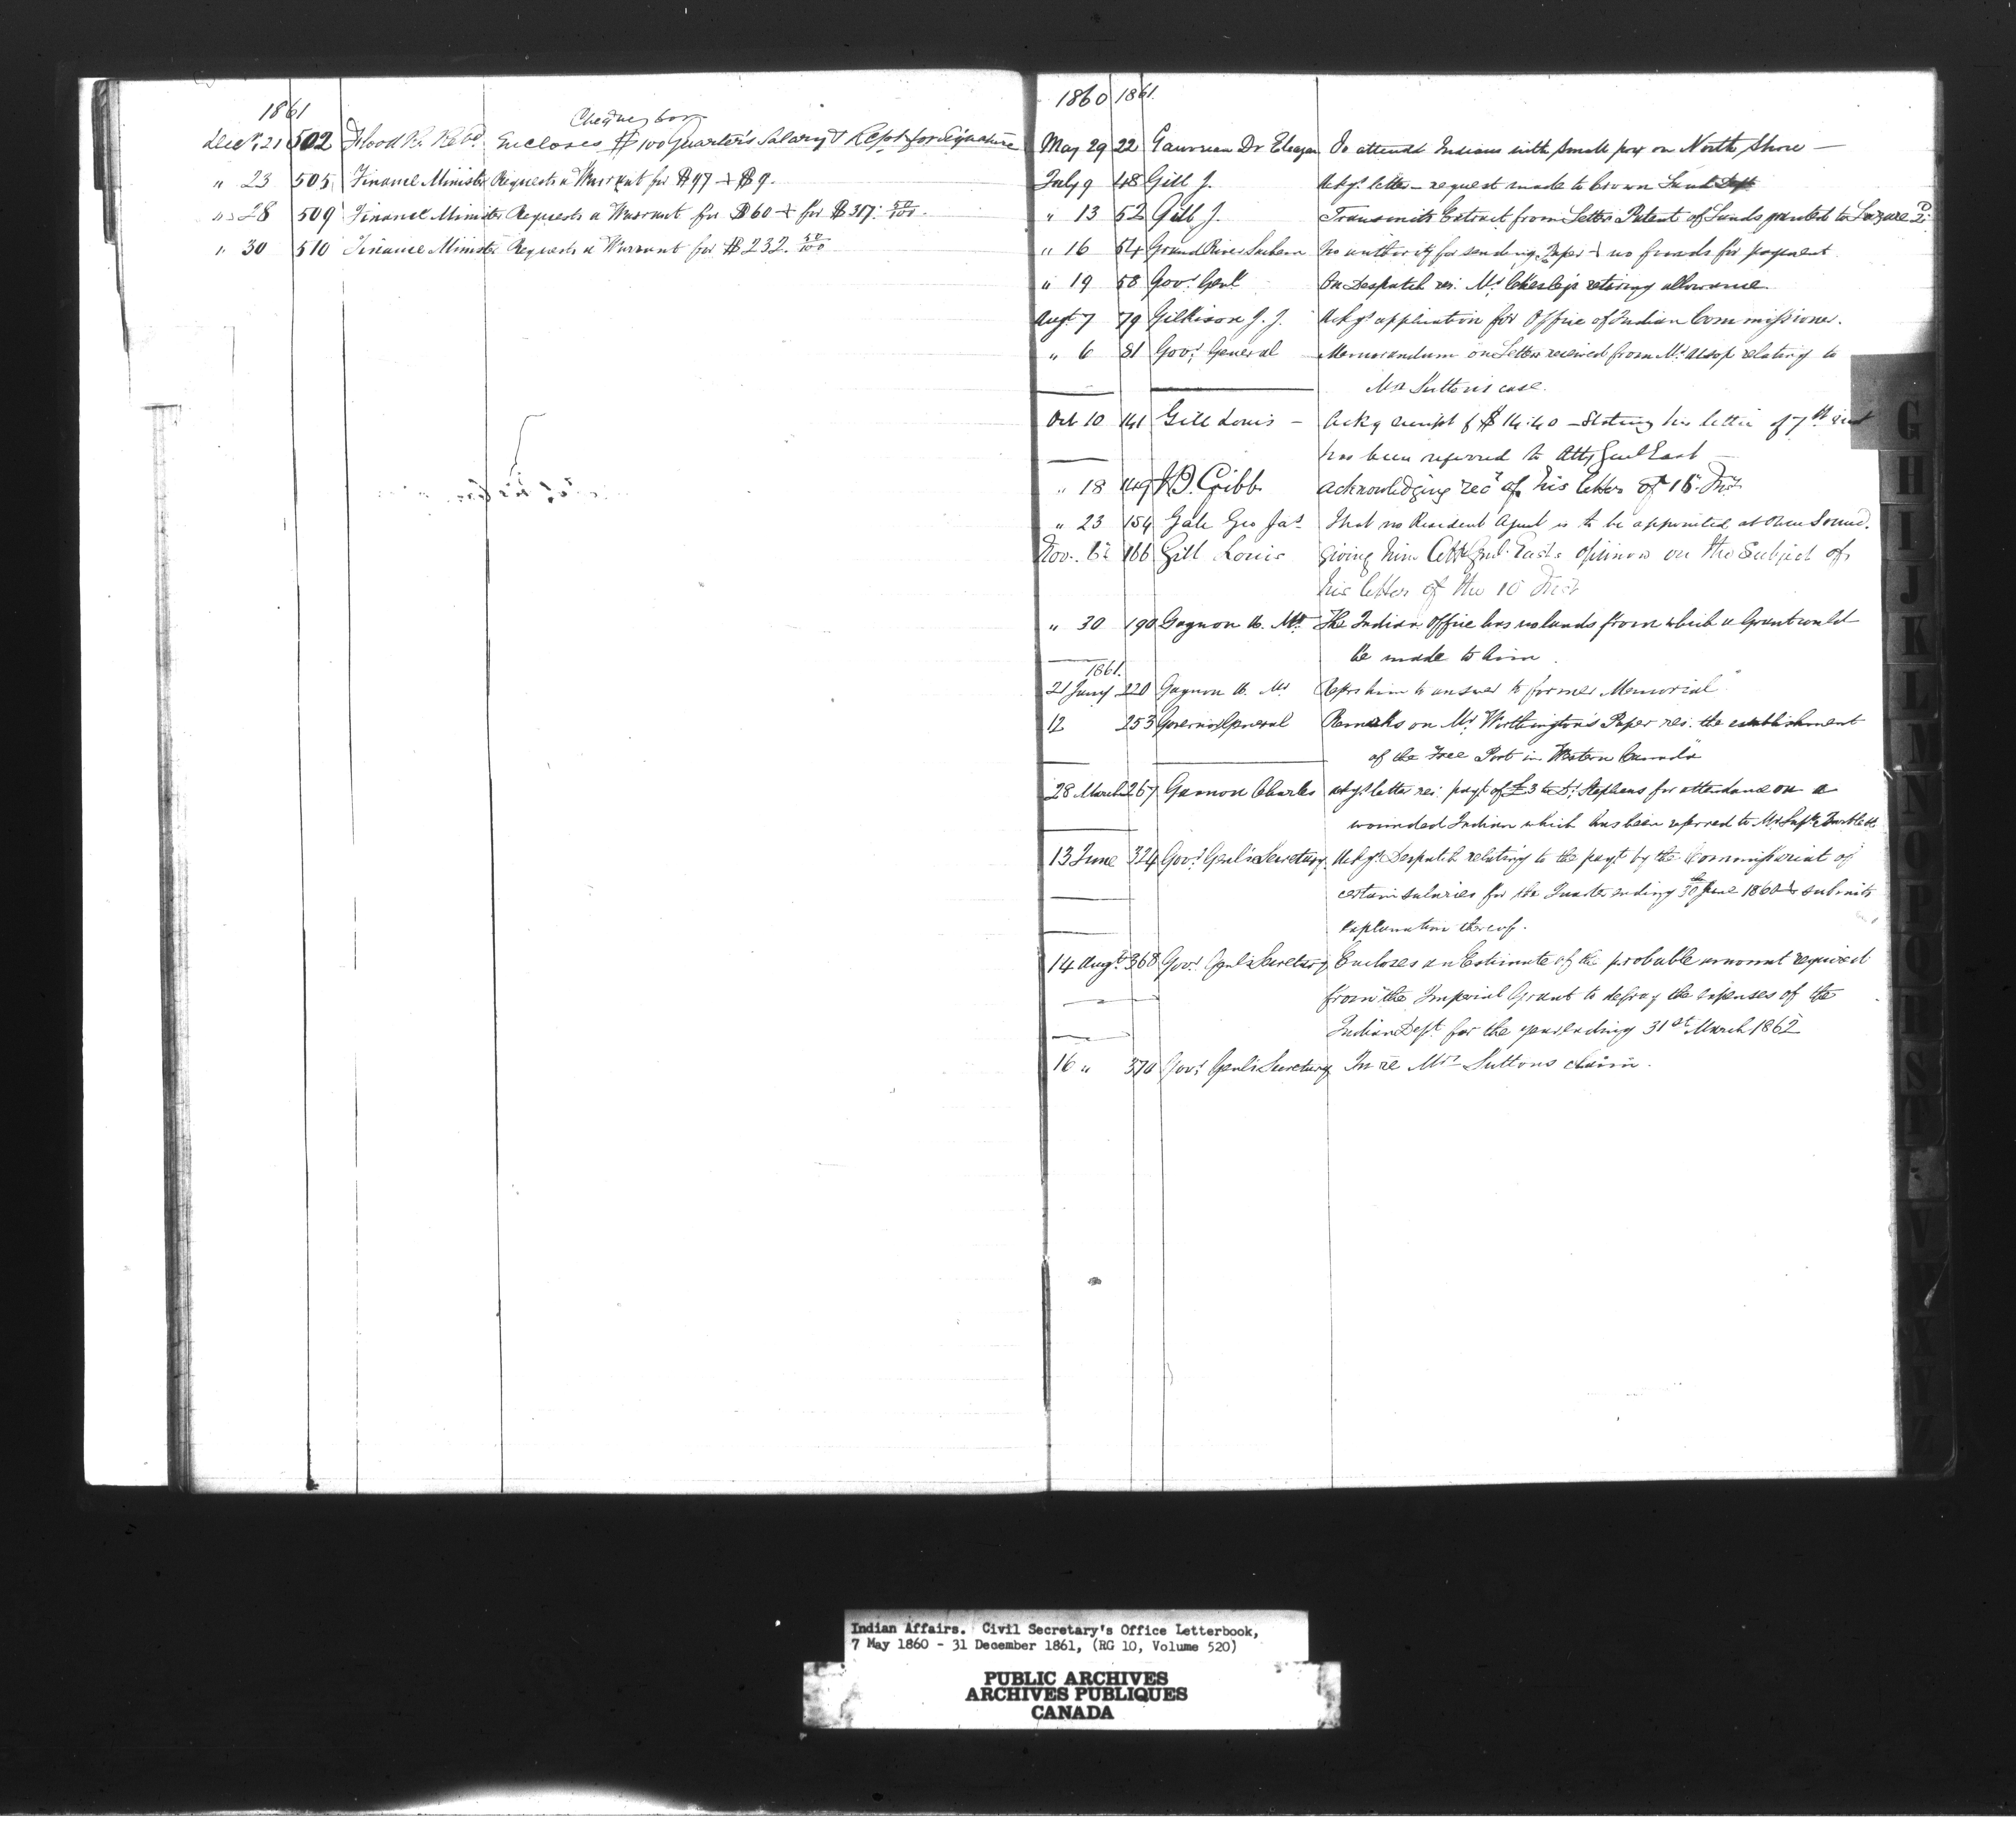 1861
Decr. 21 502 Flood R. Revd. Encloses $100 Quarter's Salary & Rept for Signature
" 23 505 Finance Minister Requests a Warrant for $97 + $9.
" 28 509 Finance Minister Requests a Warrant for $60 + for $317. 50/100.
" 30 510 Finance Minister Requests a Warrant for $232. 50/100
1860 1861.
May 29 22 Dr Eleazar To attend Indians with small pox on North Shore —
July 9 48 Gill J. Ackgs. letter — request made to Crown Land Dept
" 13 52 Gill J. Transmits Extract from Letters Patent of Lands granted to Lazare
" 16 54 Grand River Sachem No authority for sending Paper & no funds for payment
" 19 58 Govr. Genl On Despatch res. Mr. Chesley's retiring allowance.
Augt. 7 79 Gilkison J. J. Ackgs. application for Office of Indian Commissioner.
" 6 81 Govr. General Memorandum on Letter received from Mr. Alsop relating to
Mrs Sutton's case.
Oct 10 141 Gill Louis — Ackg receipt of $14.40 — Stating his letter of 7th inst
has been referred to Atty Genl East —
" 18 149 Gibb acknowledging recd of his letter of 15. Inst
" 23 154 Gale Geo Jas That no Resident Agent is to be appointed at Owen Sound.
Nov. 6 166 Gill Louis giving him Atty Genl. East's opinion on the subject of
his letter of the 10 Inst
" 30 190 Gagnon A. Mr. The Indian Office has no lands from which a Grant could
be made to him.
1861.
21 Jany 220 Gagnon A. Mr Refers him to answer to former Memorial
12 253 Governor General Remarks on Mr. Worthington's Paper res. the establishment
of the Free Port in Western Canada"
28 March 267 Gamon Charles Ackgs. letter res. payt. of £3 to Dr. Stephens for attendance on a
wounded Indian which has been referred to Mr. Supt. Bartlett
13 June 324 Govr. Genl's Secretary. Ackgs. Despatch relating to the payt. by the Commissariat of
certain salaries for the Quarter ending 30th June 1860 & submits
explanation thereof.
14 Augt. 368 Govr. Genl's Secretary Encloses an Estimate of the probable amount required
from the Imperial Grant to defray the expenses of the
Indian Dept. for the year ending 31st March 1862
16 " 370 Govr. Genl's Secretary In re Mrs Suttons claim.
G
H
I
J
K
L
M
N
O
P
Q
R
S
T
V
W
X
Y
Z
Indian Affairs. Civil Secretary's Office Letterbook,
7 May 1860 - 31 December 1861, (RG 10, Volume 520)
PUBLIC ARCHIVES
ARCHIVES PUBLIQUES
CANADA